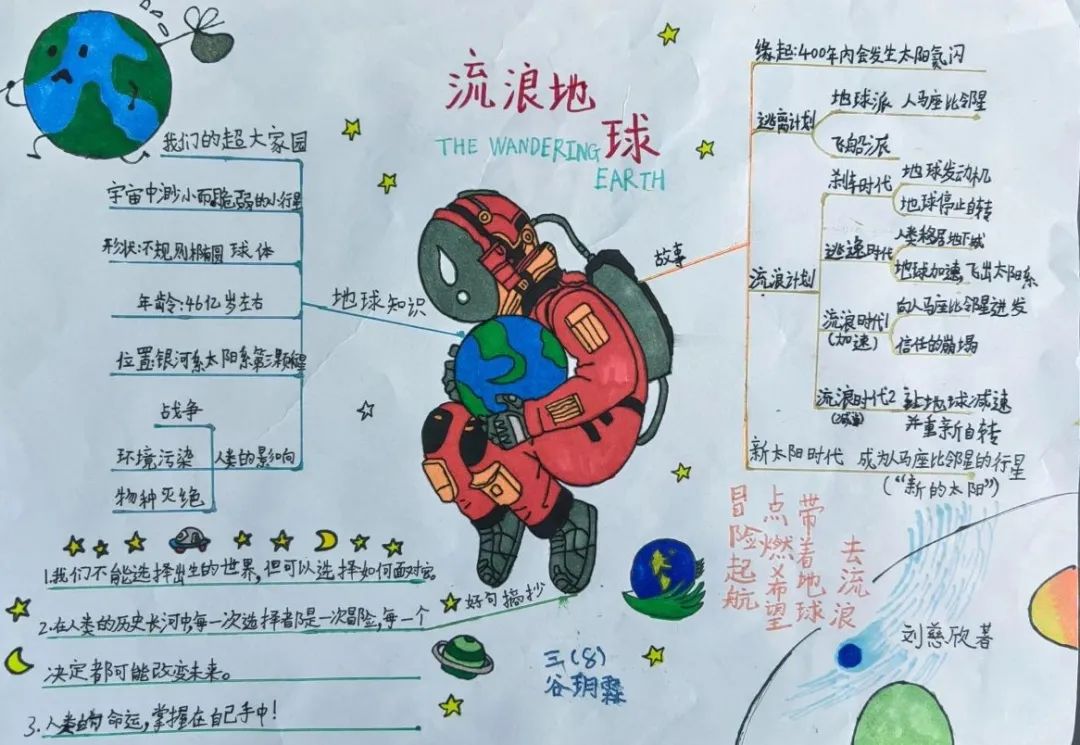 流浪地
球
THE WANDERING
EARTH
我们的超大家园
宇宙中渺小而脆弱的小行星
形状:不规则椭圆球体
年龄:46亿岁左右
位置:银河系太阳系第三颗行星
战争
环境污染
物种灭绝
人类的影响
地球知识
故事
缘起:400年内会发生太阳氦闪
逃离计划
地球派 人马座比邻星
飞船派
流浪计划
刹车时代
地球发动机
地球停止自转
逃逸时代
人类移居地下城
地球加速飞出太阳系
流浪时代1
(加速)
向人马座比邻星进发
信任的崩塌
流浪时代2
(减速)
让地球减速
并重新自转
新太阳时代 成为人马座比邻星的行星
(“新的太阳”)
好句摘抄
1.我们不能选择出生的世界,但可以选择如何面对它。
2.在人类的历史长河中,每一次选择都是一次冒险,每一个
决定都可能改变未来。
3.人类的命运,掌握在自己手中!
三(8)
谷玥霖
去流浪
带着地球
点燃希望
冒险起航
刘慈欣著